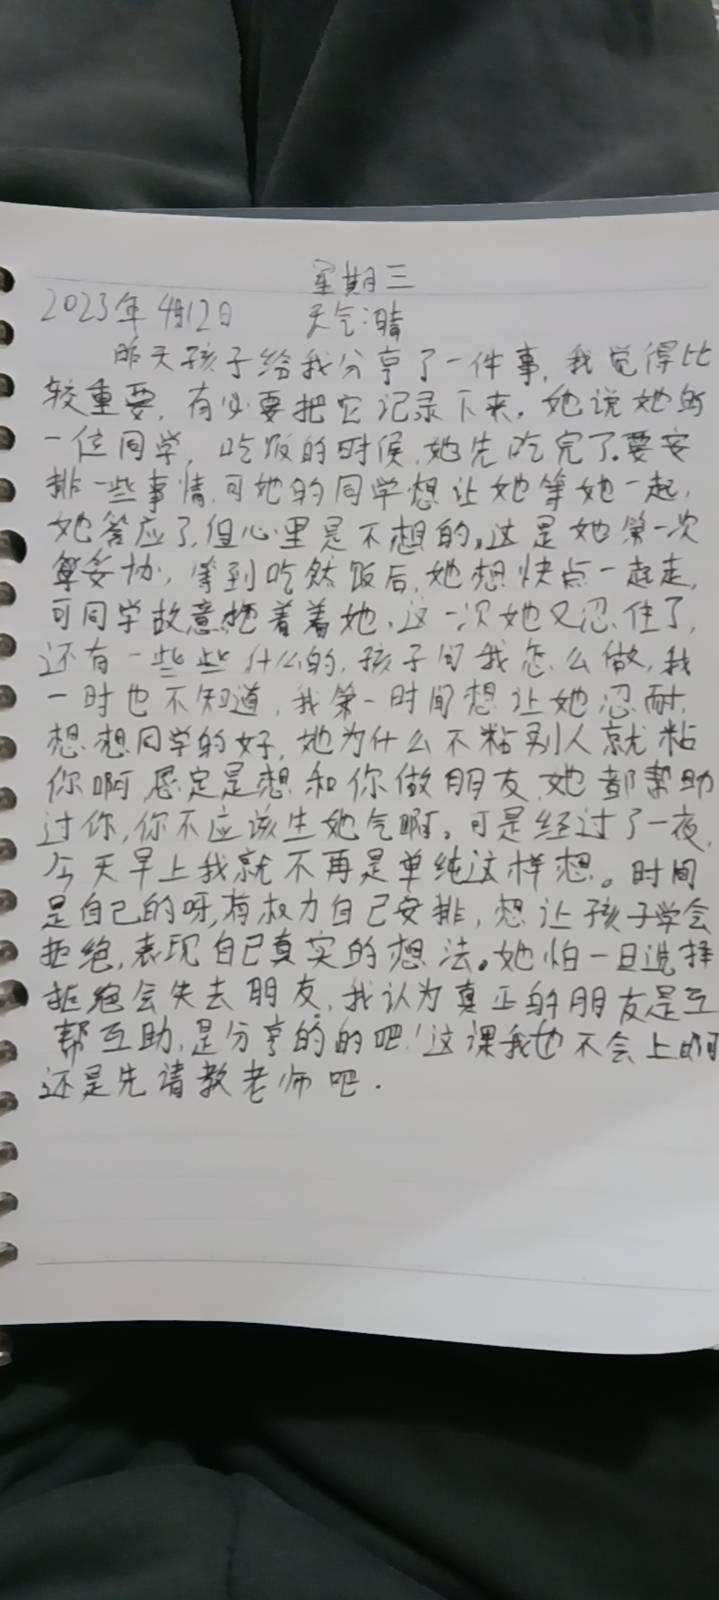 星期三
2023年4月12日 天气:晴
昨天孩子给我分享了一件事,我觉得比
较重要,有必要把它记录下来。她说她的
一位同学,吃饭的时候,她先吃完了。要安
排一些事情,可她的同学想让她等她一起,
她答应了,但心里是不想的。这是她第一次
妥协,等到吃然饭后,她想快点一起走,
可同学故意拖着着她,这一次她又忍住了,
还有一些些什么的,孩子问我怎么做,我
一时也不知道,我第一时间想让她忍耐,
想想同学的好,她为什么不粘别人就粘
你啊,定是想和你做朋友,她都帮助
过你,你不应该生她气啊。可是经过了一夜,
今天早上我就不再是单纯这样想。时间
是自己的呀,有权力自己安排,想让孩子学会
拒绝,表现自己真实的想法。她怕一旦选择
拒绝会失去朋友,我认为真正的朋友是互
帮互助,是分享的的吧!这课我也不会上啊
还是先请教老师吧.